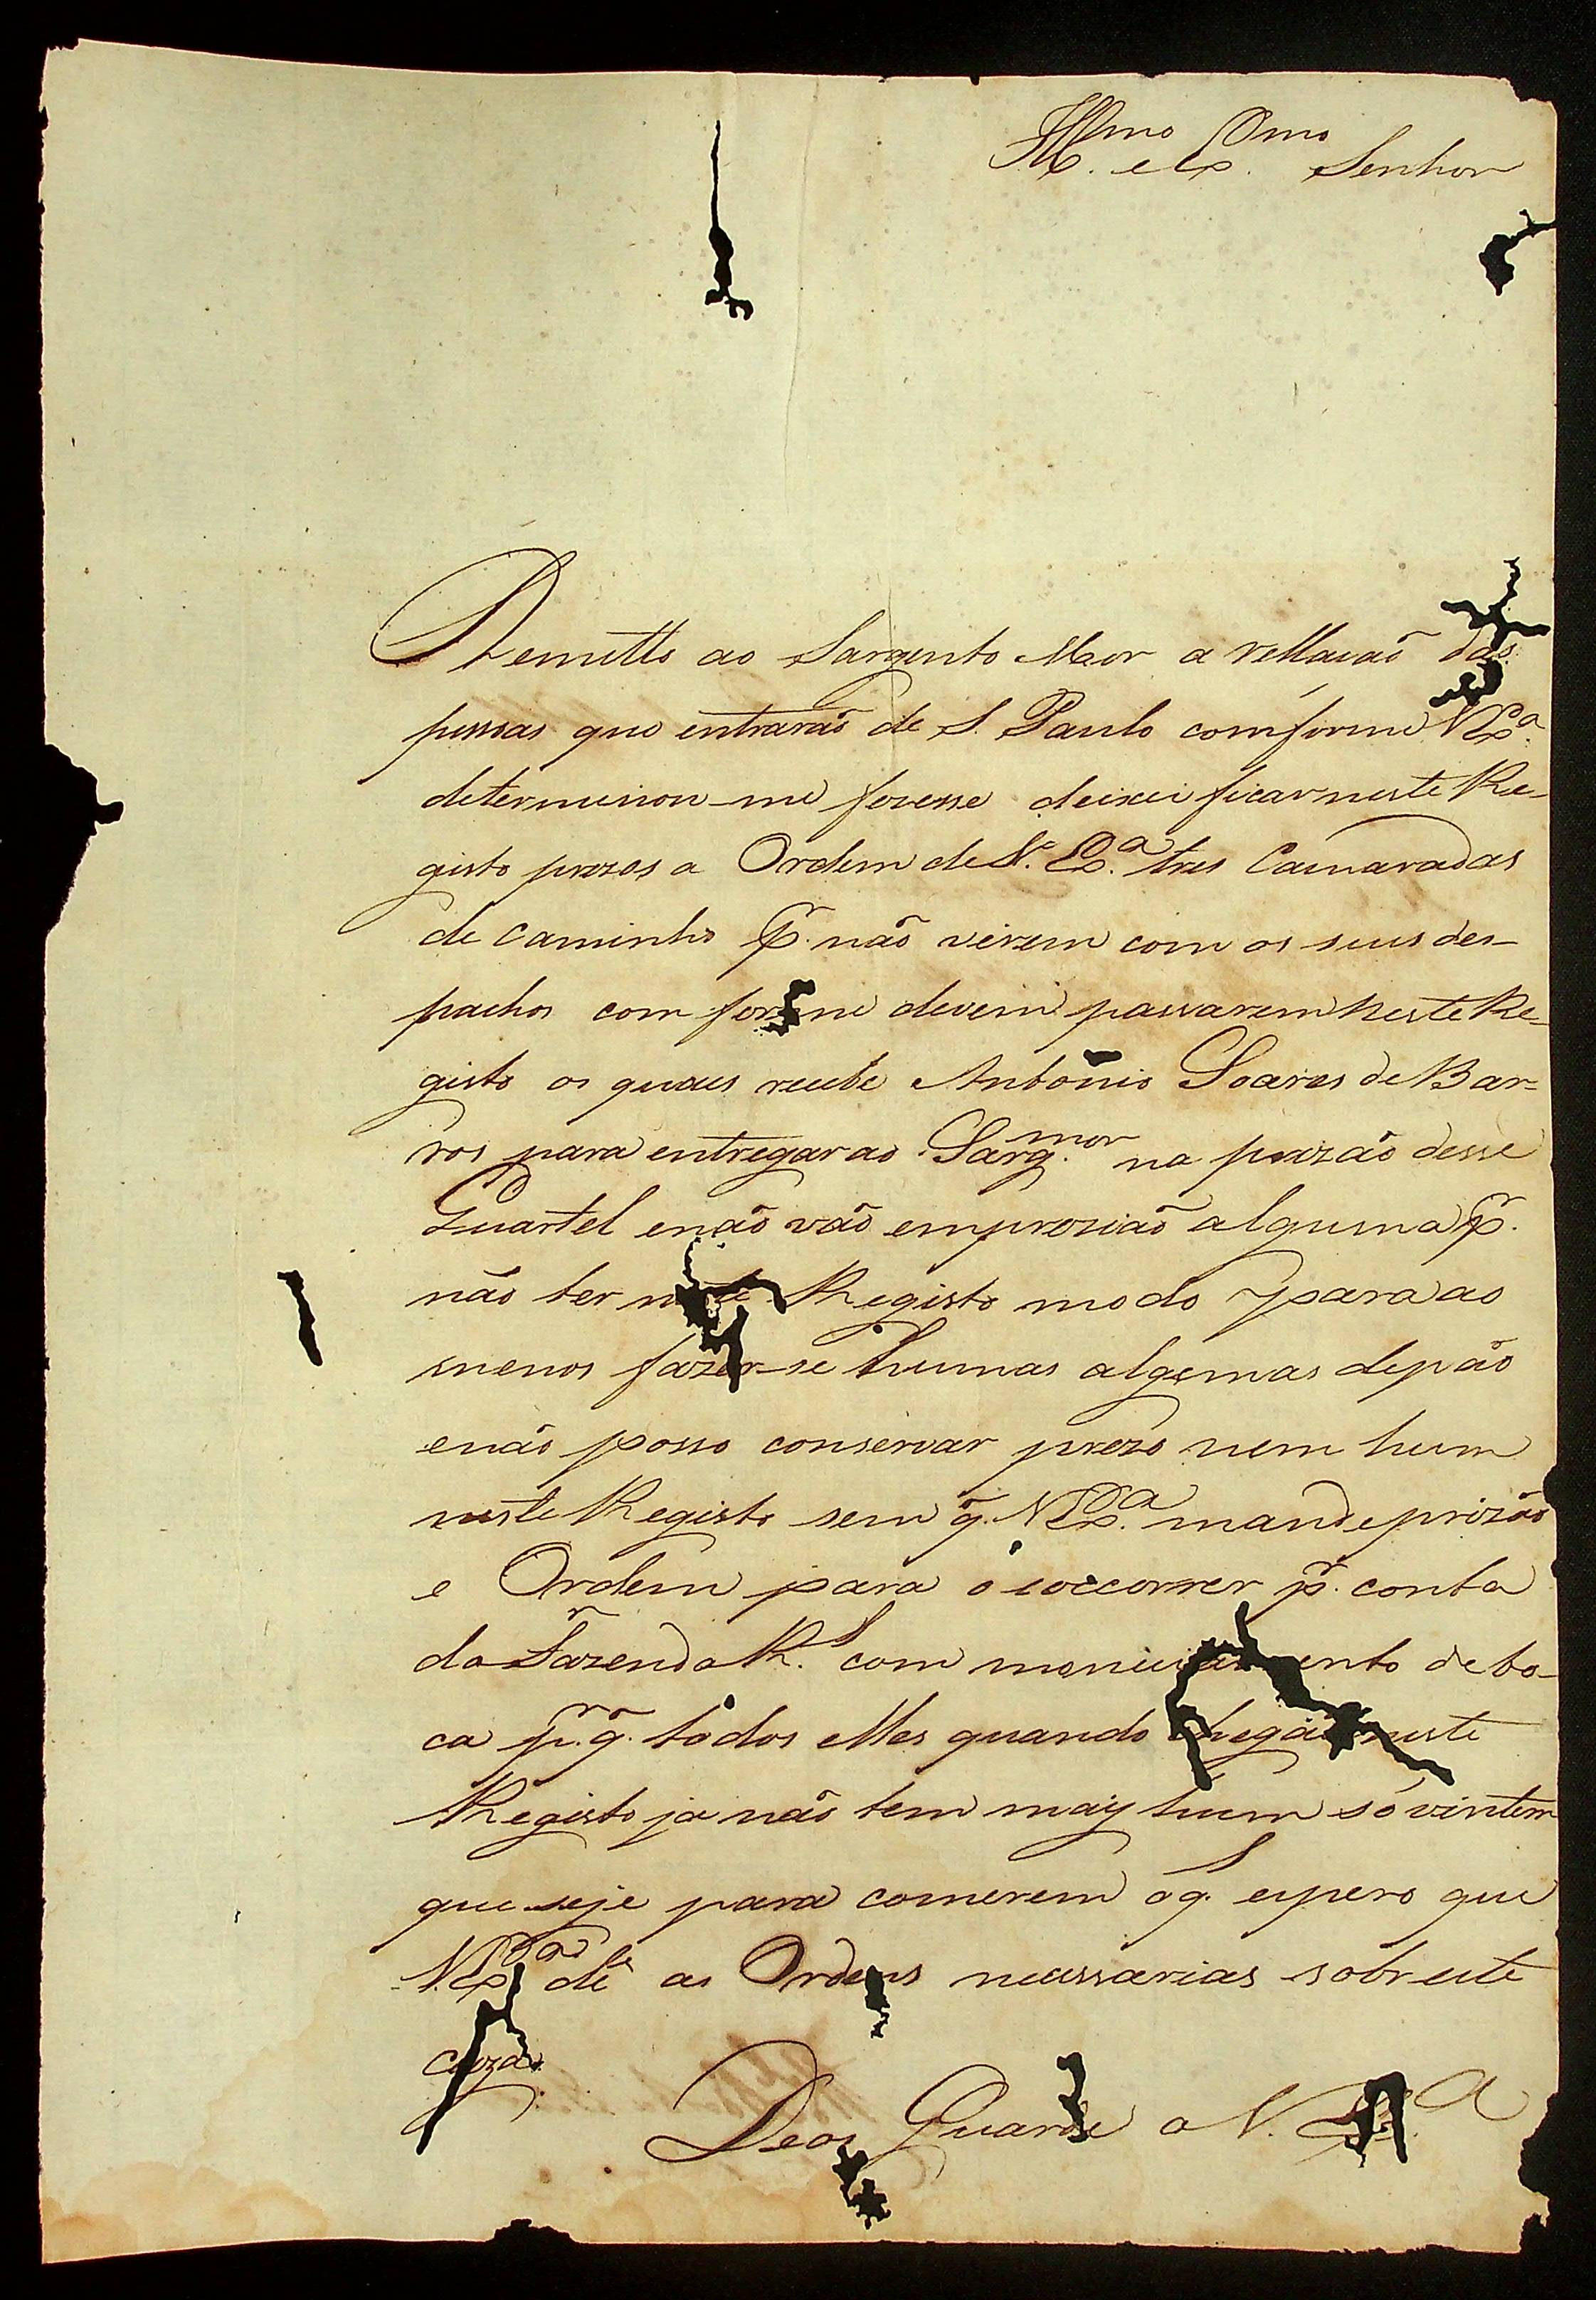 Ill.mo e Ex.mo Senhor
Remetto ao Sargento Mor a rellacaõ das
pessoas que entraraõ de S. Paulo comforme V Ex.a
determinou-me fozesse deixei ficar neste Re-
gisto prezos a Ordem de V. Ex.a tres Camaradas
de caminho p.r naõ virem com os seus des-
pachos com forme devem passarem neste Re-
gisto os quaes recebe Antonio Soares de Bar=
ros para entregar ao Sarg.mor na prizaõ desse
Quartel enaõ vaõ emproziaõ alguma p.r
naõ ter neste Registo modo para ao
menos fazer-se humas algemas depáo
enaõ posso conservar prezo nem hum
neste Registo sem q̃. V Ex.a mande prizaõ
e Ordem para o soccorrer p.r conta
da Fazenda R.l com debo-
ca p.r q̃. todos elles quando chegaõ neste
Registo ja naõ tem maiz hum só vintem
que seje para comerem o q̃. espero que
V. Ex.a dê as Ordens necessarias sobreste
cauza.
Deos Guarde a V. Ex.a